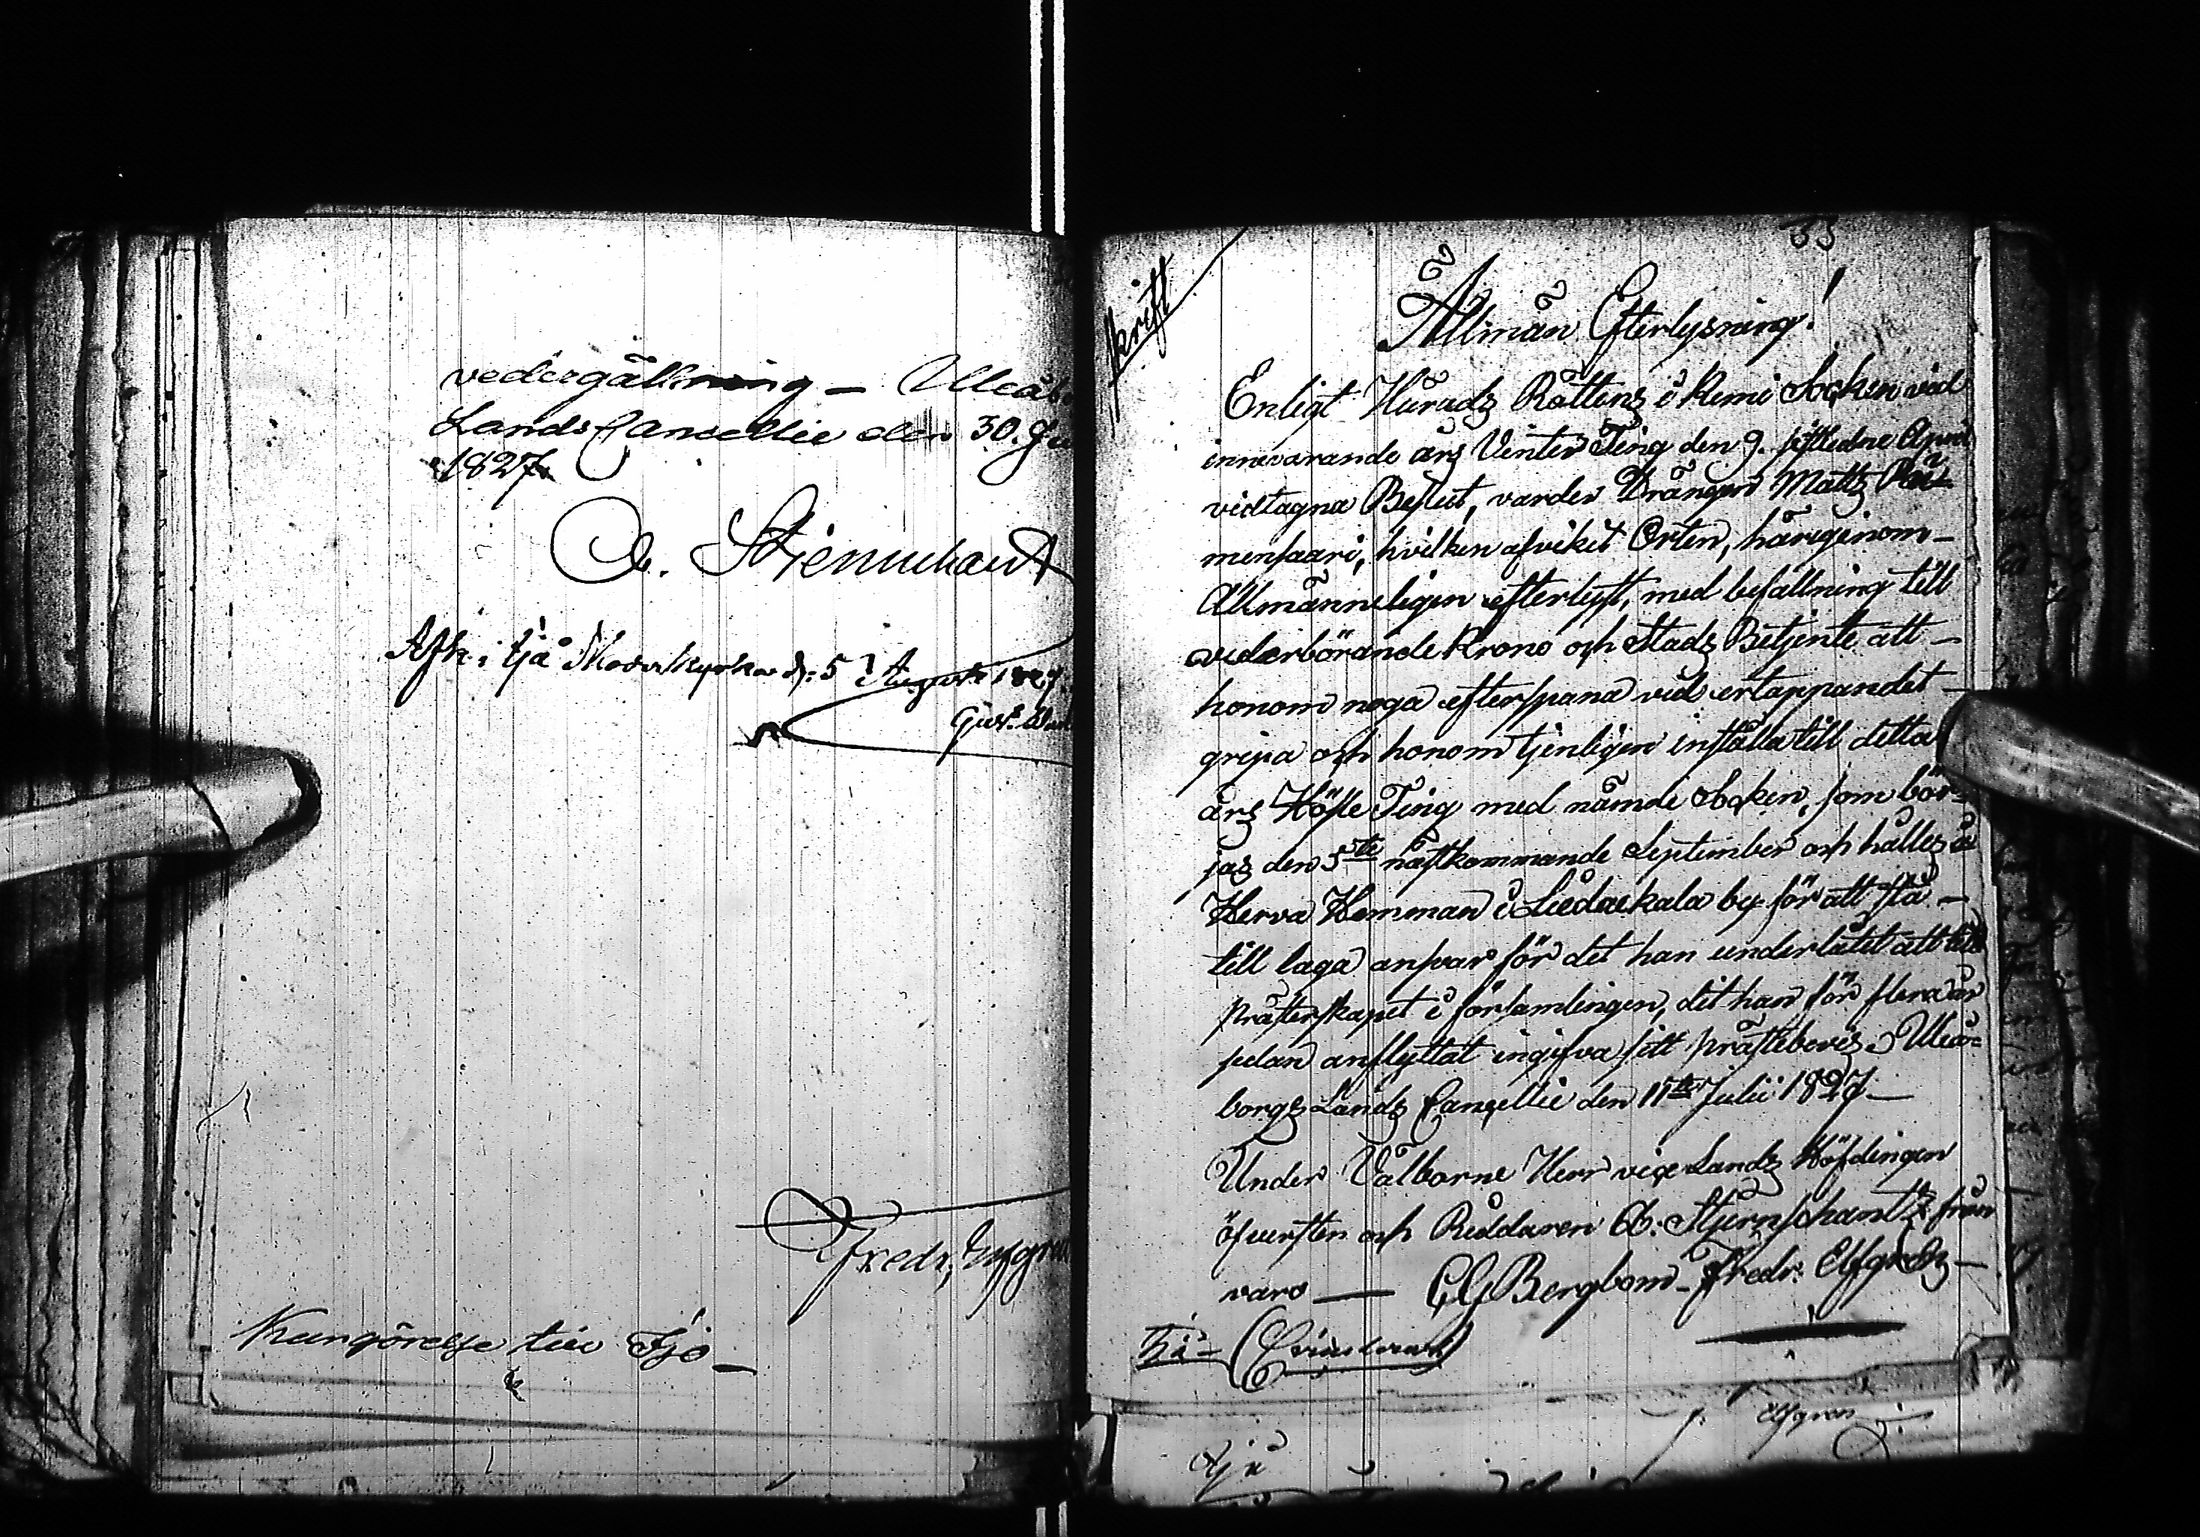 vedergällning – Uleåb
Lands Cancellie den 30. Ju
1827.
Stjernschantz
i Ijå Moderkyrka d: 5 Augusti 1827.
Gust.
Fredr. Elfgren
Kungörelse till Ijo –
skrift
33
Allmän Efterlysning!
Enligt Härads Rättens i Kemi Socken vid
innevarande års Vinter Ting den 9. sistledne April
vidtagna Beslut, varder Drängen Matts
mensaari, hvilken afvikit Orten, härigenom –
Allmänneligen efterlyst, med befallning till
vederbörande Krono och Stads Betjente att –
honom noga efterspana vid ertappandet –
gripa och honom tjenligen inställa till detta
års Höste Ting med nämde Socken, som bör-
jas den 5te nästkommande September och hålles å
Herva Hemman i Liedakkala by för att stå –
till laga ansvar för det han underlåtit att till
Prästerskapet i församlingen, dit han för flera år
sedan anflyttat ingifva sitt prästebevis. Uleå-
borgs Lands Cancellie den 11te Julii 1827 –
Under Välborne Herr vice Lands Höfdingen
öfversten och Riddaren A: Stjernschantz från
varo — C G Bergbom – Fredr: Elfgren –
Ijå –
Elfgren
Ijå